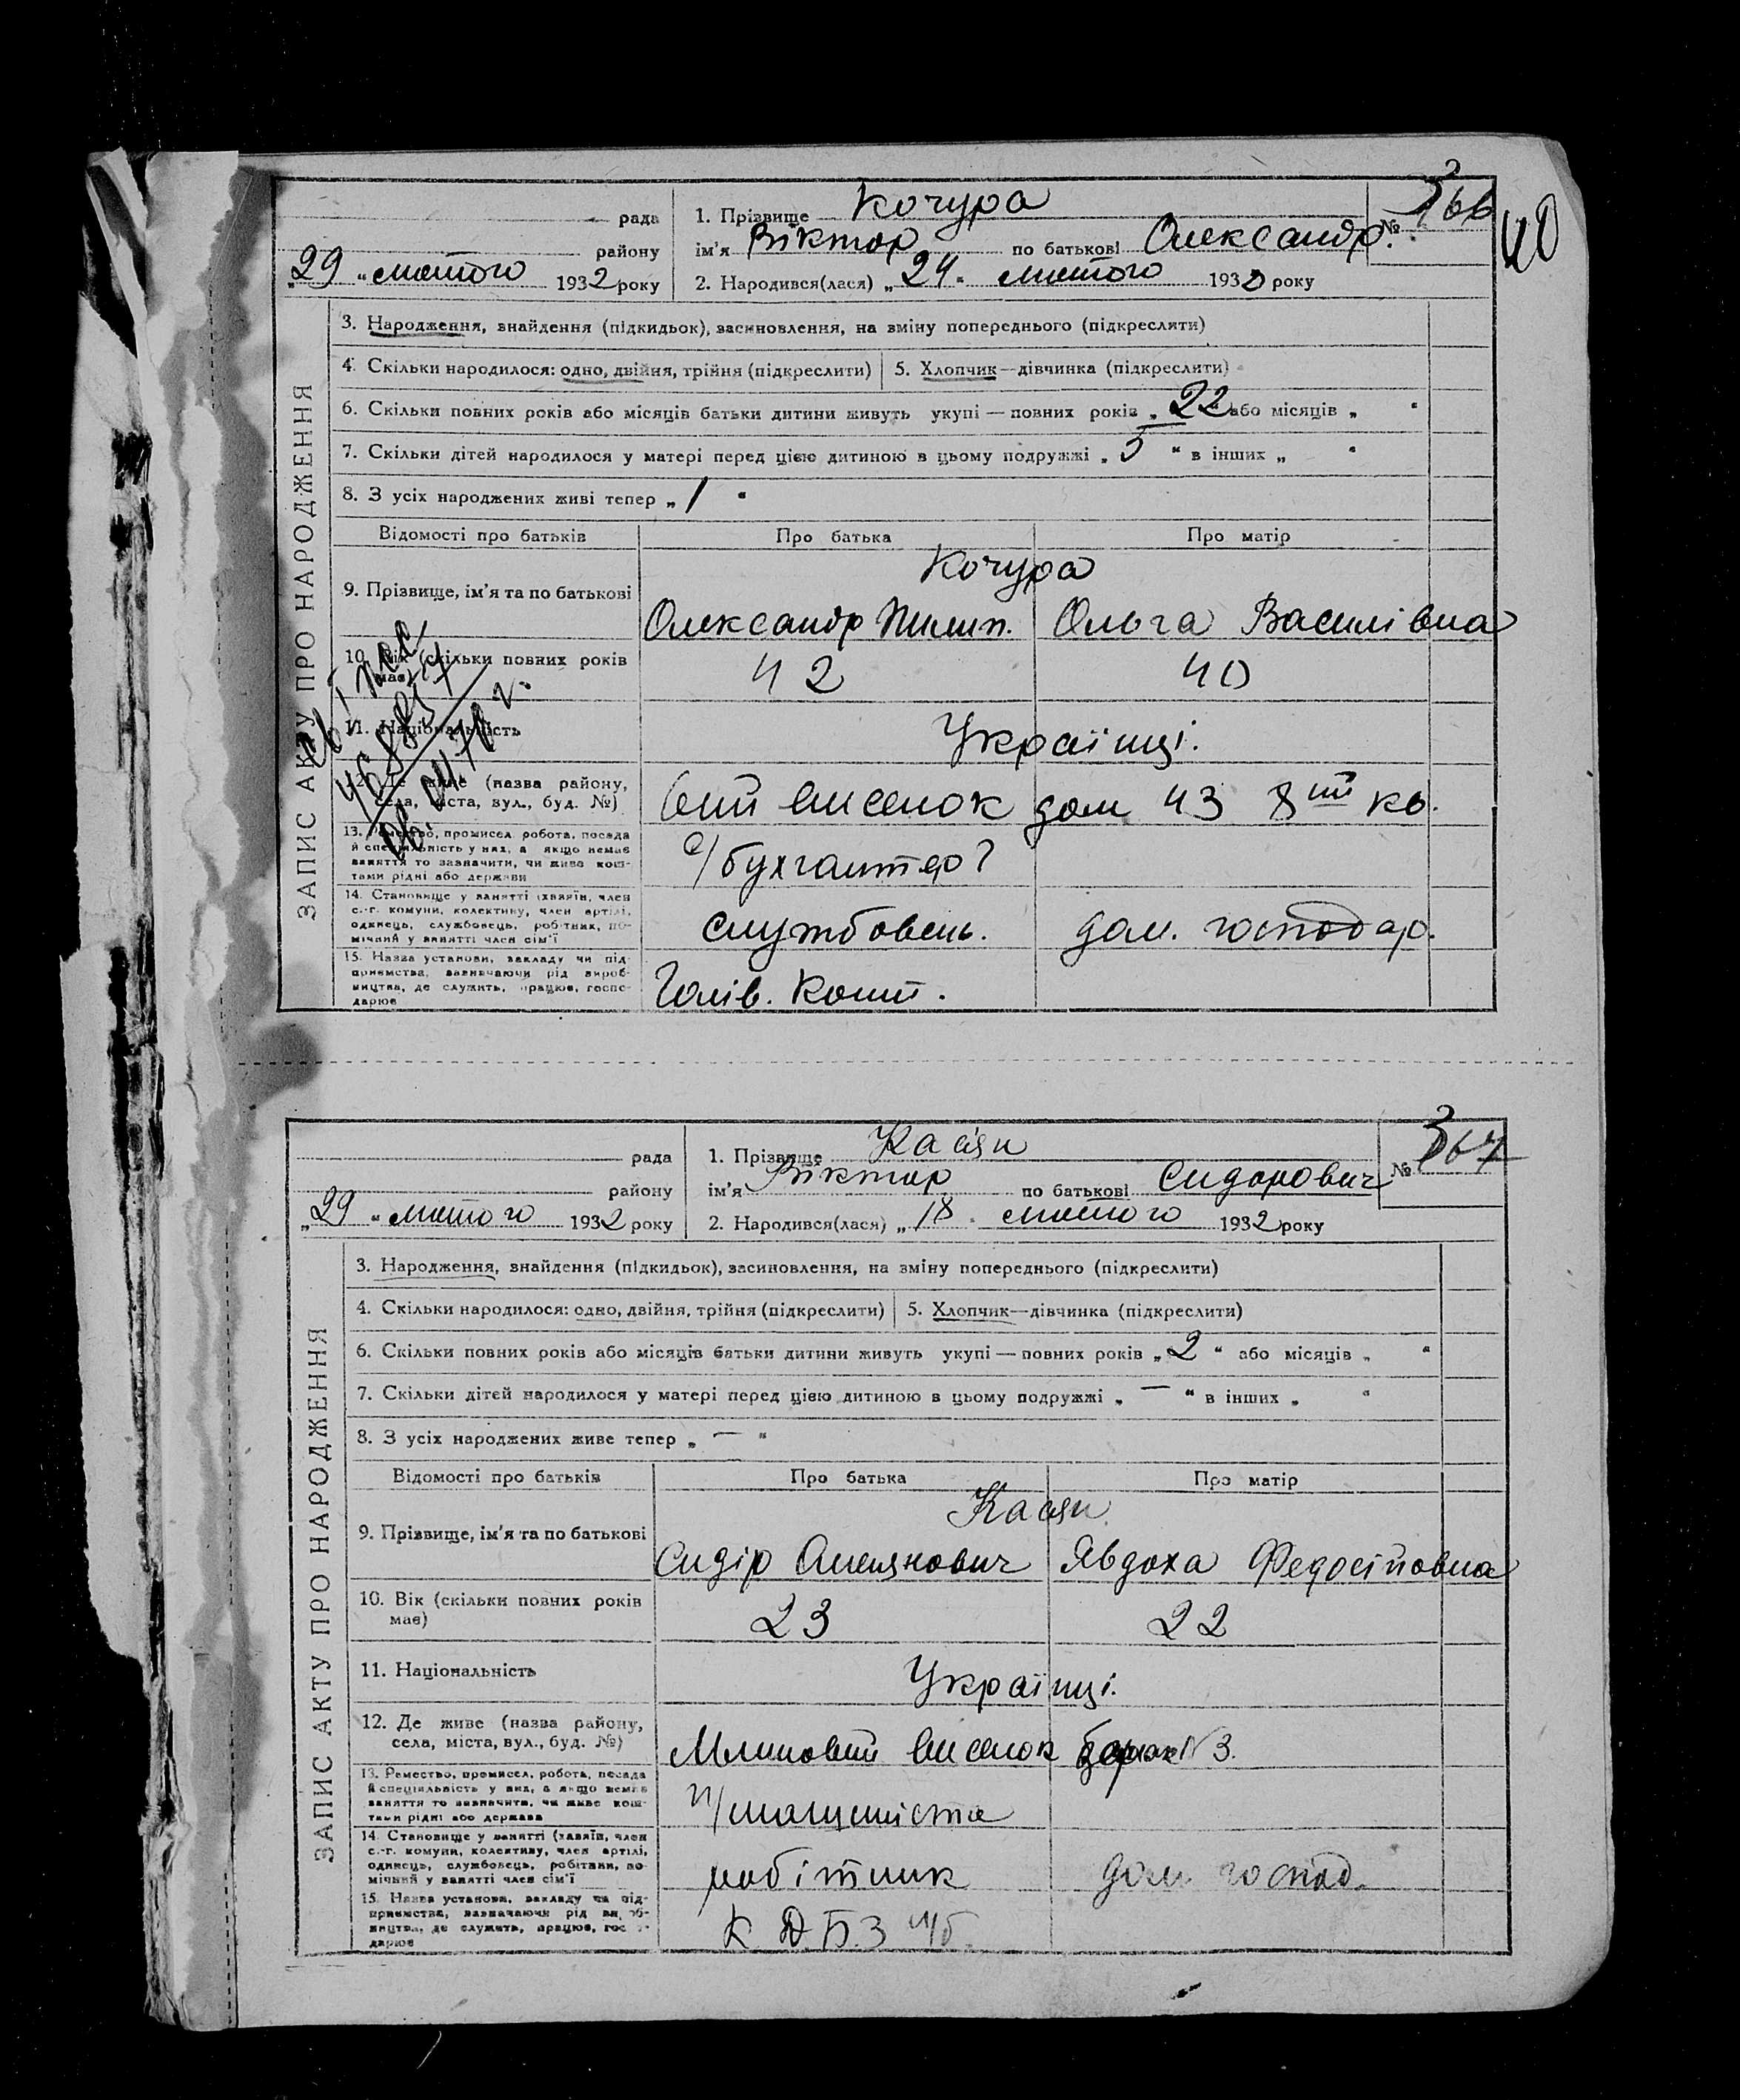 40
рада
району
„29 “ лютого 1932 року
1. Прізвище Кочура
ім'я Віктор по батькові Олександр.
2. Народився(лася) „24“ лютого 1932 року
№ 366
ЗАПИС АКТУ ПРО НАРОДЖЕННЯ
3. Народження, знайдення (підкидьок), засиновлення, на зміну попереднього (підкреслити)
4. Скільки народилося: одно, двійня, трійня (підкреслити)
5. Хлопчик—дівчинка (підкреслити)
6. Скільки повних років або місяців батьки дитини живуть укупі — повних років „22“ або місяців „ “
7. Скільки дітей народилося у матері перед цією дитиною в цьому подружжі „5 “ в інших „ “
8. З усіх народжених живі тепер „1 “
Відомості про батьків Про батька Про матір
9. Прізвище, ім'я та по батькові
Кочура
Олександр Пилип. Ольга Василівна
10. Вік (скільки повних років має)
42 40
11. Національність
Українці.
12. Де живе (назва району,
села, міста, вул., буд. №)
6ий виселок дом 43 8ий кв.
13. Ремество, промисел, робота, посада
й спеціяльність у них, а якщо немає
заняття то зазначити, чи живе кош-
тами рідні або держави
с/бухгалтер
14. Становище у занятті (хазяїн, член
с.-г. комуни, колективу, член артілі,
одинець, службовець, робітник, по-
мічний у занятті член сім'ї
службовець. дом. господар.
15. Назва установи, закладу чи під-
приємства, зазначаючи рід вироб-
ництва, де служить, працює, госпо-
дарює
рада
району
„29 “ лютого 1932 року
1. Прізвище Касян
ім'я Віктор по батькові Сидорович
2. Народився(лася) „18 “ лютого 1932 року
№ 367
ЗАПИС АКТУ ПРО НАРОДЖЕННЯ
3. Народження, знайдення (підкидьок), засиновлення, на зміну попереднього (підкреслити)
4. Скільки народилося: одно, двійня, трійня (підкреслити)
5. Хлопчик—дівчинка (підкреслити)
6. Скільки повних років або місяців батьки дитини живуть укупі — повних років „2 “ або місяців „ “
7. Скільки дітей народилося у матері перед цією дитиною в цьому подружжі „ — “ в інших „ “
8. З усіх народжених живе тепер „ — “
Відомості про батьків Про батька Про матір
9. Прізвище, ім'я та по батькові
Касян
Сидір Явдоха
10. Вік (скільки повних років
має)
23 22
11. Національність
Українці.
12. Де живе (назва району,
села, міста, вул., буд. №)
Млиновий виселок барак №3.
13. Ремество, промисел, робота, посада
й спеціяльність у них, а якщо немає
заняття то зазначити, чи живе кош-
тами рідні або держава
п/машиніста
14. Становище у занятті (хазяїн, член
с.-г. комуни, колективу, член артілі,
одинець, службовець, робітник, по-
мічний у занятті член сім'ї
робітник дом. господ.
15. Назва установи, закладу чи під-
приємства, зазначаючи рід вироб-
ництва, де служить, працює, госпо-
дарює